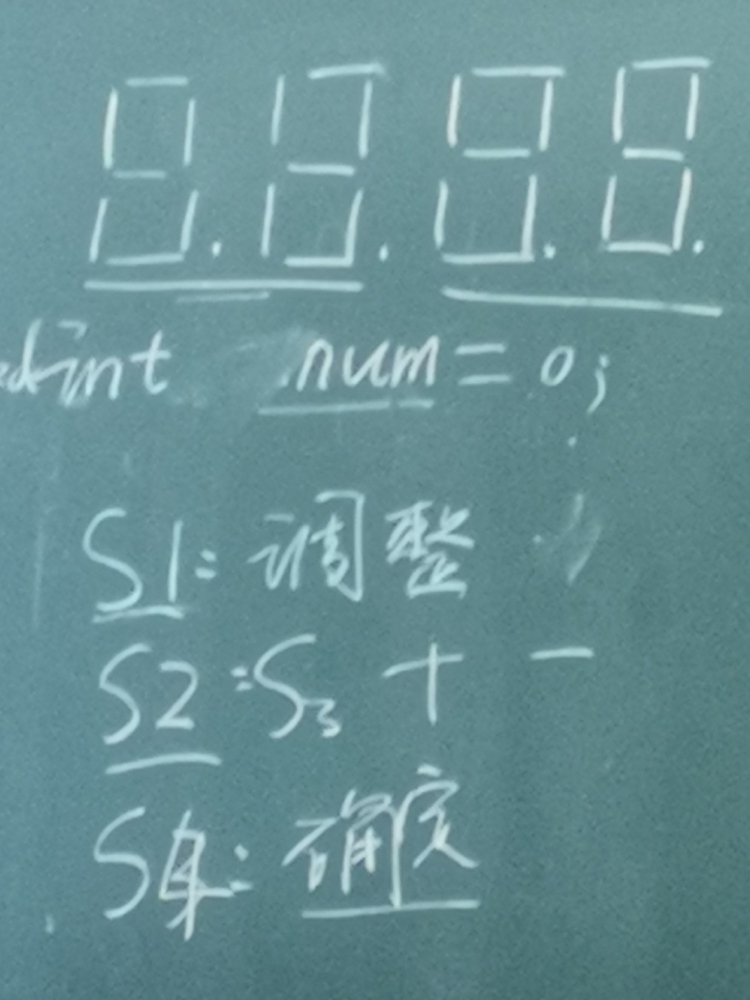 8.8.8.8.
dint num=0;
S1:调整
S2:S3 + -
S4:确定